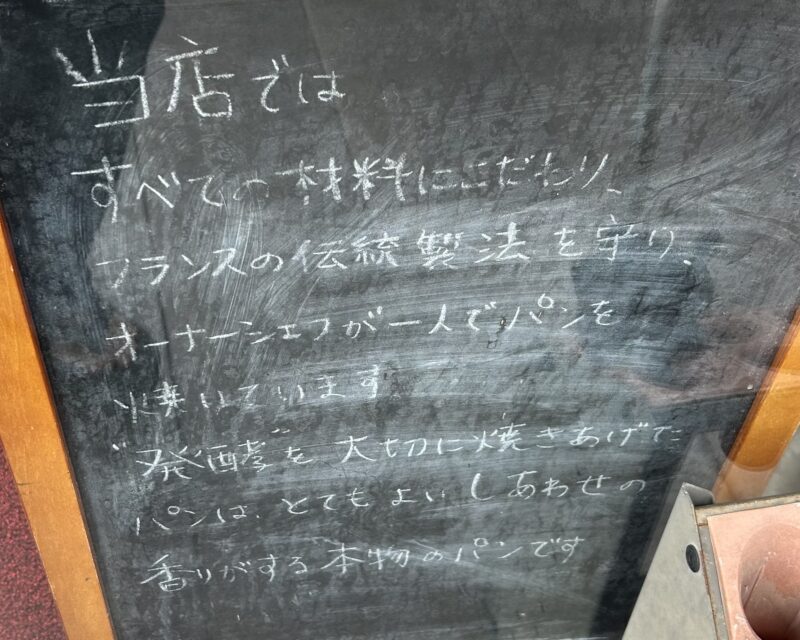 当店では
すべての材料にこだわり、
フランスの伝統製法を守り、
オーナーシェフが一人でパンを
焼いています
"発酵"を大切に焼きあげた
パンは、とてもよいしあわせの
香りがする本物のパンです